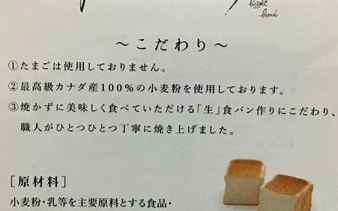 ～こだわり～
①たまごは使用しておりません。
②最高級カナダ産100%の小麦粉を使用しております。
③焼かずに美味しく食べていただける「生」食パン作りにこだわり、
職人がひとつひとつ丁寧に焼き上げました。
[原材料]
小麦粉・乳等を主要原料とする食品・